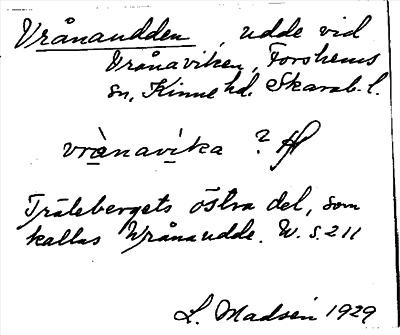 Vrånaudden, udde vid
Vrånaviken, Forshems
sn, Kinne hd. Skarab. l.
vrànavíka ?
Trälebergets östra del, som
kallas Wrånaudde. W. s. 211
L. Madsén 1929